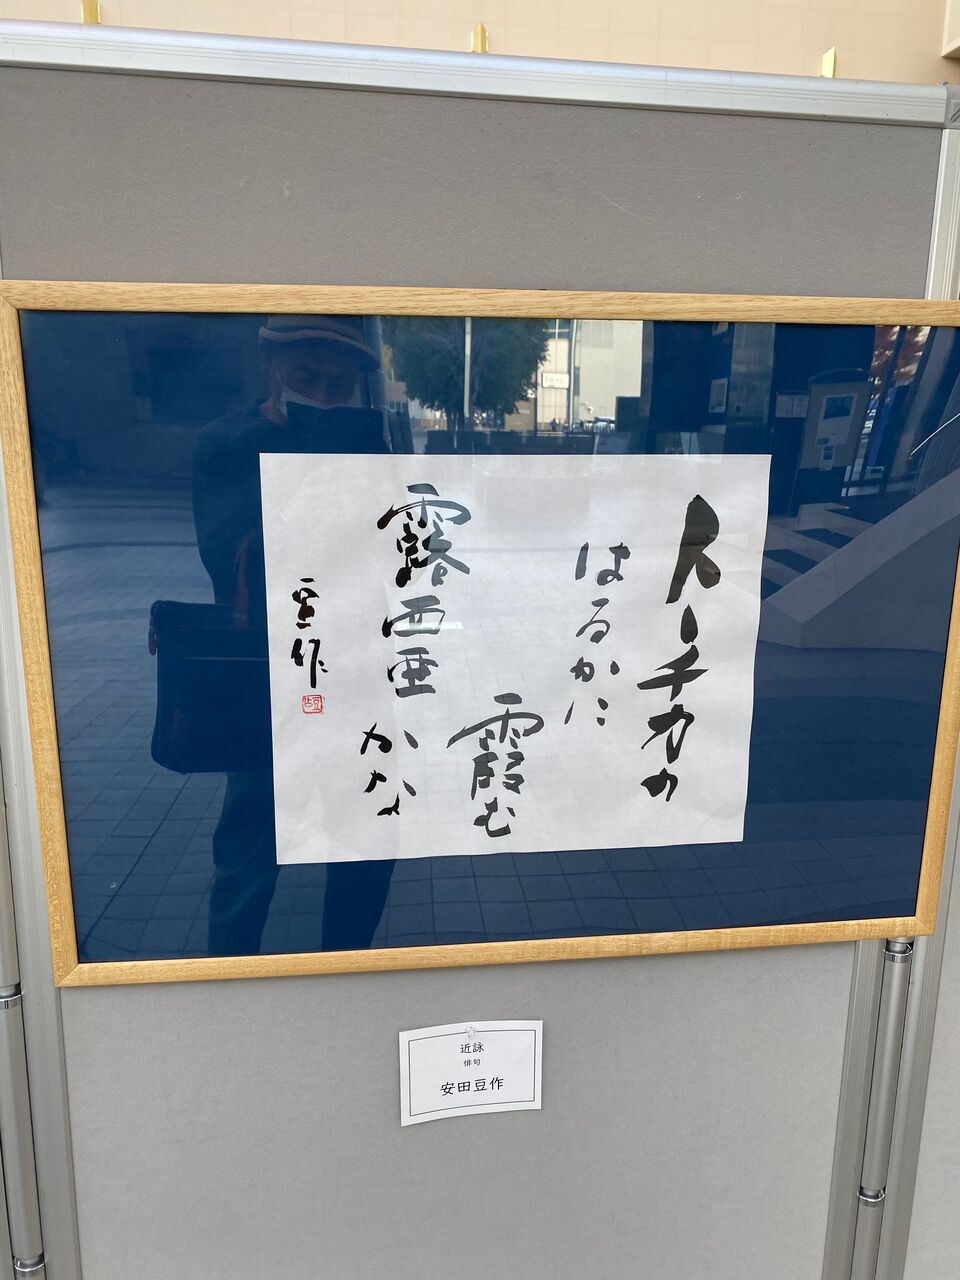 トーチカの
はるかに
霞む
露西亜
かな
豆作
近詠
俳句
安田豆作